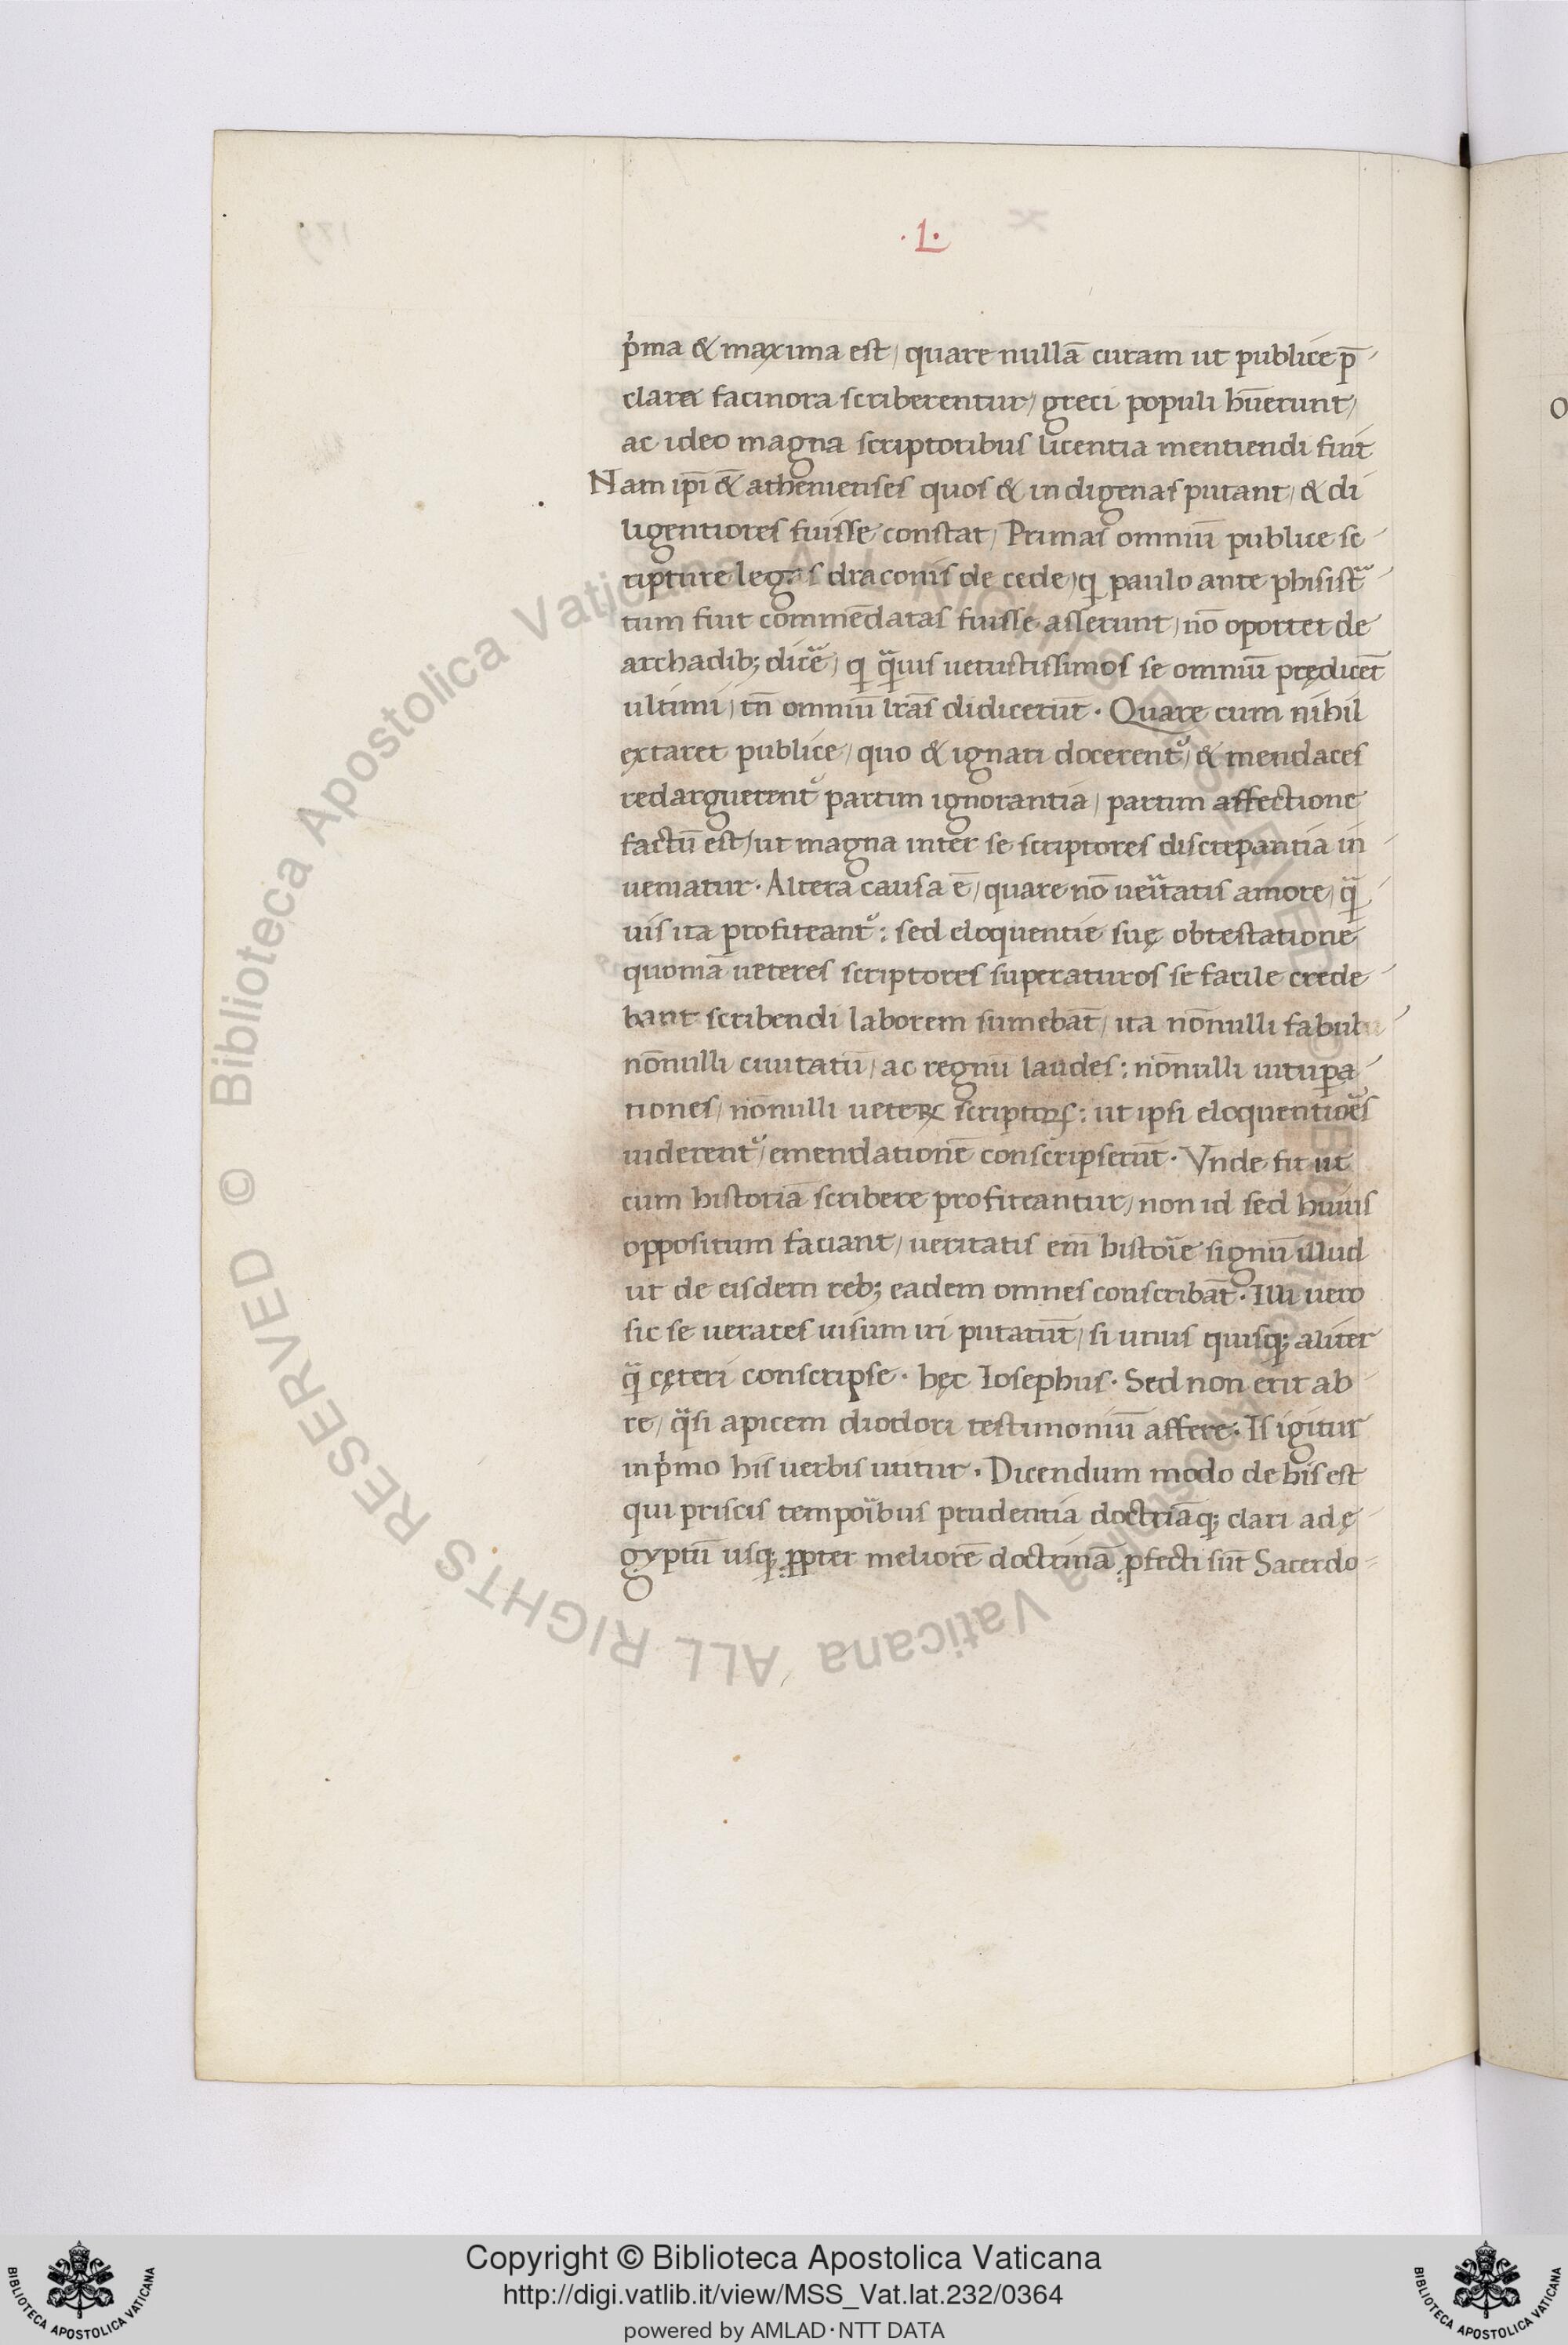 ·L·
p̾ma & maxima est / quare nullā curam ut publice p̄
clara facinora scriberentur / greci populi hūerunt /
ac ideo magna scriptoribus licentia mentiendi fuit
Nam ip̄i & athenienses quos & indigenas putant / & di
ligentiores fuisse constat / Primas omniū publice sc
ripture leges draconis de cede / q paulo ante phisist
tum fuit commēdatas fuisse asserunt / nō oportet de
archadib; dicē / q q̄uis uetustissimos se omniū prędicēt
ultimi / tn̄ omniū lrās didicerūt · Quare cum nihil
extaret publice / quo & ignari docerent᷑ / & mendaces
redarguerent᷑ partim ignorantia / partim affectione
factū est / ut magna inter se scriptores discrepantia in
ueniatur · Altera causa ē / quare nō ueritatis amore / q̄
uis ita profiteant᷑ : sed eloquentie suę obtestatione
quoniā ueteres scriptores superaturos se facile crede
bant scribendi laborem sumebāt / ita nōnulli fabulā
nōnulli ciuitatū / ac regnū laudes : nōnulli uitupa
tiones / nōnulli ueteꝝ scriptoꝝ : ut ipsi eloquentiōes
uiderent᷑ / emendationē conscripserūt · Vnde fit ut
cum historiā scribere profiteantur / non id sed huius
oppositum faciant / ueritatis em̄ historie signū illud
ut de eisdem reb; eadem omnes conscribāt · Illi uero
sic se ueraces uisum iri putarūt / si unus quisq; aliter
q̄ cęteri conscripse · hęc Iosephus · Sed non erit ab
re / q̈si apicem diodori testimoniū affere · Is igitur
in p̾mo his uerbis utitur · Dicendum modo de his est
qui priscis temporibus prudentia doctrīaq; clari ad ę
gyptū usq; ꝓpter meliorē doctrinā ꝓfecti sūt Sacerdo
© Biblioteca Apostolica Vaticana ALL RIGHTS RESERVED © Biblioteca Apostolica Vaticana ALL RIGHTS RESERVED
Copyright © Biblioteca Apostolica Vaticana
http://digi.vatlib.it/view/MSS_Vat.lat.232/0364
powered by AMLAD·NTT DATA
BIBLIOTECA APOSTOLICA VATICANA
BIBLIOTECA APOSTOLICA VATICANA